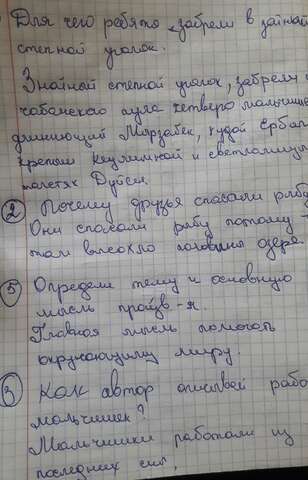 Для чего ребята забрели в зайной
степной уголок.
Знойный степной уголок, забрели
чабанского аула четверо мальчише
длинноющий Мырзабек, худой Ербол
крепыш Кеулимжой и светлолицый
толстяк Дуйсен
② Почему друзья спасали рыбу
Они спасали рыбу потому
там высохло половины озера
⑤ Определи тему и основную
мысль произв-я.
Главная мысль помогать
окружающиму миру.
③ Как автор описывает рабо
мальчишек?
Мальчишки работали из
последних сил,